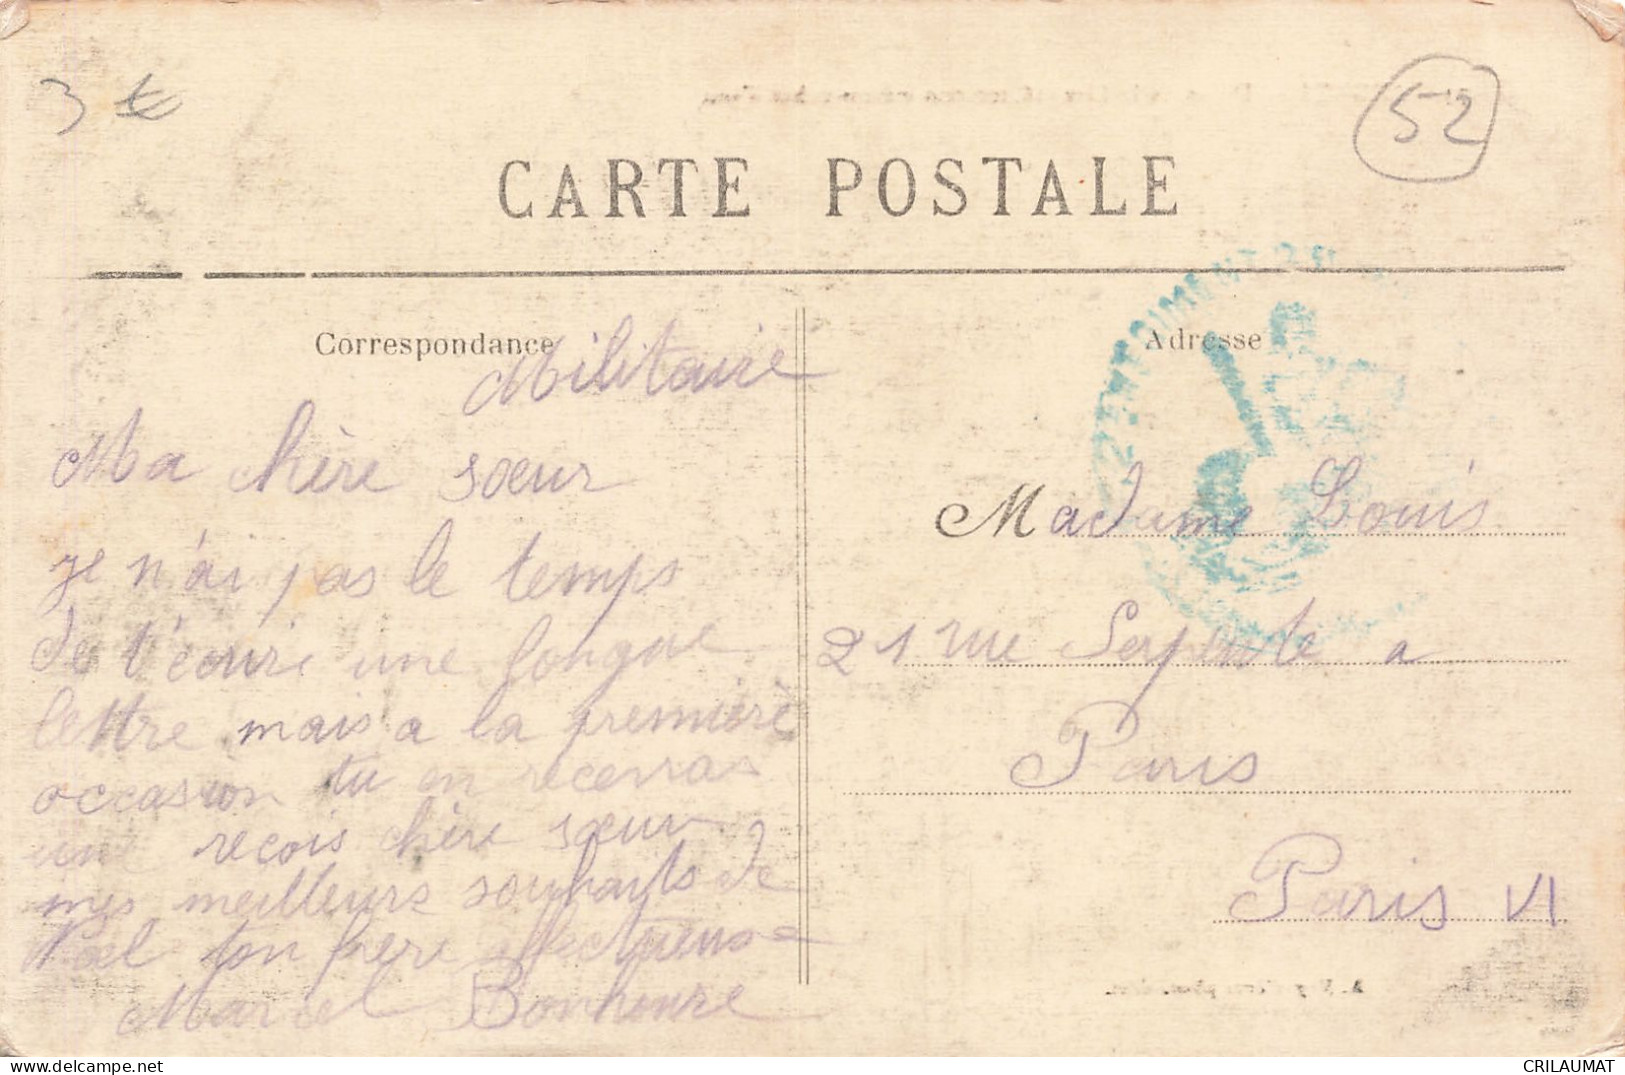 3 €
52
CARTE POSTALE
Correspondance
Adresse
Militaire
Ma chère sœur
je n'ai pas le temps
de t'écrire une longue
lettre mais a la première
occasion tu en recevras
une reçois chère sœur
mes meilleurs souhaits de
Noel ton frère affectueux
Marcel Bonheure
Madame Louis
21 rue Serpente a
Paris
Paris VI
CRILAUMAT